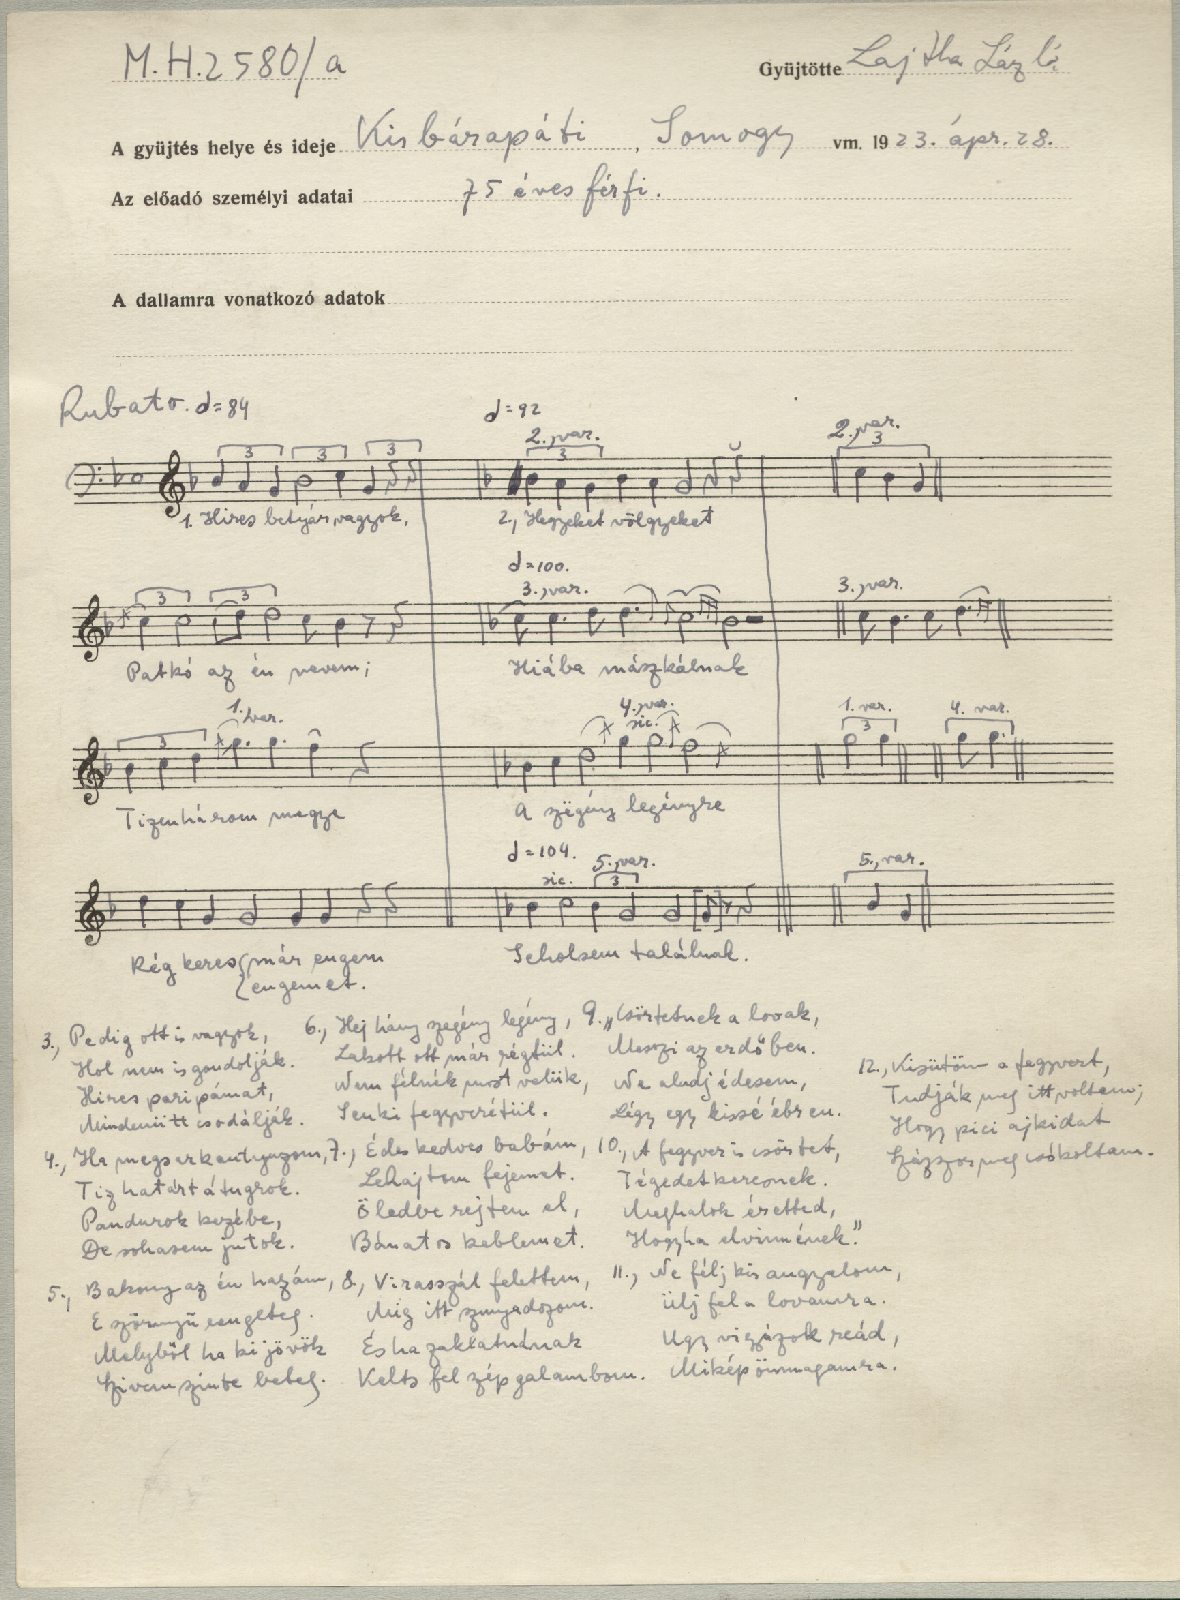 M.H.2580/a
Gyüjtötte Lajtha László
A gyüjtés helye és ideje Kisbárapáti, Somogy vm. 1923. ápr. 28.
Az előadó személyi adatai 75 éves férfi.
A dallamra vonatkozó adatok
Rubato. d=84
d=92
2., var.
2., var.
3 3 3 3 3
1. Hires betyár vagyok,
2., Hegyeket völgyeket
d=100.
3., var.
3., var.
3 3
Patkó az én nevem;
Hiába mászkálnak
1., var.
4., var.
sic.
1. var.
4. var.
3 3
Tizenhárom megye
A szëgény legényre
d=104.
5., var.
sic.
5., var.
3
Rég keres már engem
engemet.
Sehol sem találnak.
3., Pedig ott is vagyok,
Hol nem is gondolják.
Hires paripámat,
Mindenütt csodálják.
4., Ha megsarkantyuzom,
Tiz határt átugrok.
Pandurok kezébe,
De sohasem jutok.
5., Bakony az én hazám,
E szörnyü rengeteg.
Melyből ha ki jövök
Szivem szinte beteg.
6., Hej hány szegény legény,
Lakott ott már régtül.
Nem félnék most velük,
Senki fegyverétül.
7., Édes kedves babám,
Lehajtom fejemet.
Öledbe rejtem el,
Bánatos keblemet.
8., Virasszál felettem,
Mig itt szunyadozom.
És ha zaklatnának
Kelts fel szép galambom.
9., „Csörtetnek a lovak,
Messzi az erdőben.
Ne aludj édesem,
Légy egy kissé ébren.
10., A fegyver is csörtet,
Tégedet keresnek.
Meghalok éretted,
Hogyha elvinnének."
11., Ne félj kis angyalom,
Ülj fel a lovamra.
Ugy vigyázok reád,
Mikép önmagamra.
12., Kisütöm a fegyvert,
Tudják meg itt voltam;
Hogy pici ajkidat
Százszor meg csókoltam.